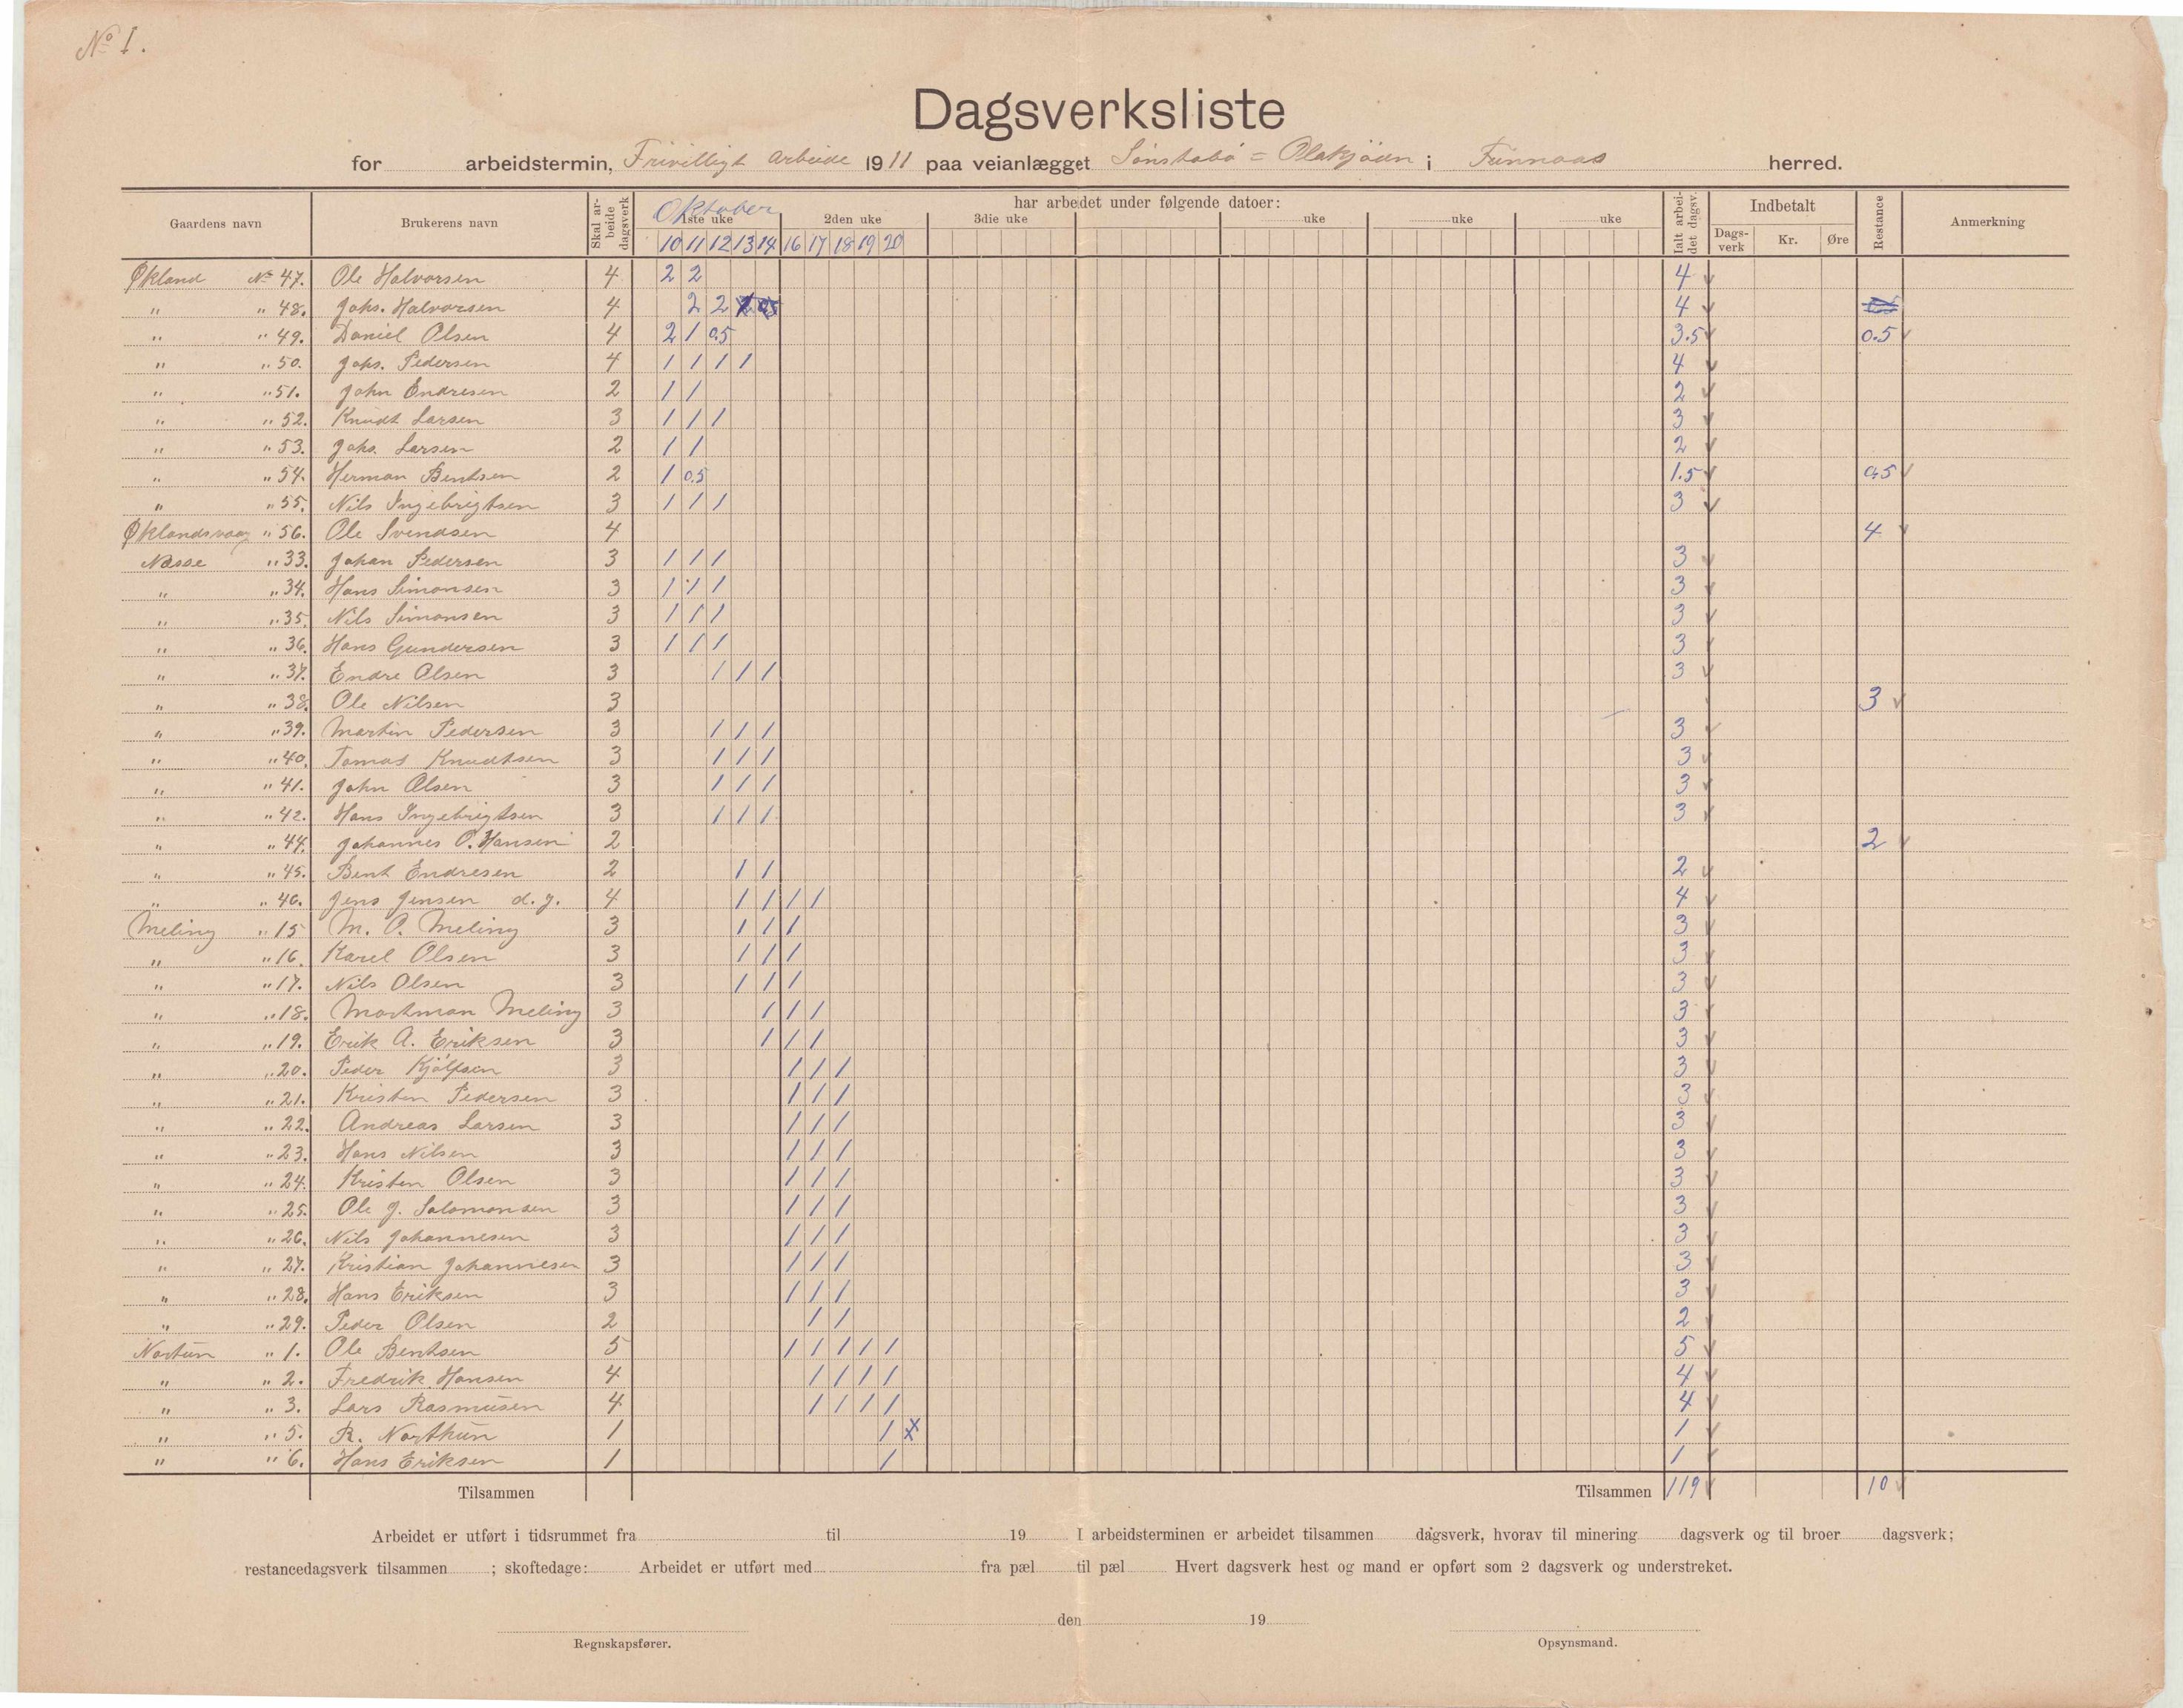 No 1.
Dagsverksliste
for arbeidstermin, Frivilligt arbeide 1911 paa veianlægget Sönstabö = Olakjöen i Finnaas herred.
Gaardens navn Brukerens navn Skal arbeide dagsverk har arbedet under følgende datoer: Ialt arbeidet dagsv. Indbetalt Restance Anmerkning
Oktober
1ste uke 2den uke 3die uke uke uke uke
Dagsverk Kr. Øre
10 11 12 13 14 16 17 18 19 20
Økland No 47. Ole Halvorsen 4 2 2 4
" " 48. Johs. Halvorsen 4 2 2 4
" " 49. Daniel Olsen 4 2 1 0.5 3.5 0.5
" " 50. Johs. Pedersen 4 1 1 1 1 4
" " 51. John Endresen 2 1 1 2
" " 52. Knudt Larsen 3 1 1 1 3
" " 53. Johs. Larsen 2 1 1 2
" " 54. Herman Bentsen 2 1 0.5 1.5 0.5
" " 55. Nils Ingebrigtsen 3 1 1 1 3
Øklandsvaag " 56. Ole Svendsen 4 4
Næsse " 33. Johan Pedersen 3 1 1 1 3
" " 34. Hans Simonsen 3 1 1 1 3
" " 35. Nils Simonsen 3 1 1 1 3
" " 36. Hans Gundersen 3 1 1 1 3
" " 37. Endre Olsen 3 1 1 1 3
" " 38. Ole Nilsen 3 3
" " 39. Martin Pedersen 3 1 1 1 3
" " 40. Tomas Knudtsen 3 1 1 1 3
" " 41. John Olsen 3 1 1 1 3
" " 42. Hans Ingebrigtsen 3 1 1 1 3
" " 44. Johannes O. Hansen 2 2
" " 45. Bent Endresen 2 1 1 2
" " 46. Jens Jensen d.y. 4 1 1 1 1 4
Meling " 15 M. O. Meling 3 1 1 1 3
" " 16. Karel Olsen 3 1 1 1 3
" " 17. Nils Olsen 3 1 1 1 3
" " 18. Mortman Meling 3 1 1 1 3
" " 19. Erik A. Eriksen 3 1 1 1 3
" " 20. Peder Kjölfsen 3 1 1 1 3
" " 21. Kristen Pedersen 3 1 1 1 3
" " 22. Andreas Larsen 3 1 1 1 3
" " 23. Hans Nilsen 3 1 1 1 3
" " 24. Kristen Olsen 3 1 1 1 3
" " 25. Ole J. Salomonsen 3 1 1 1 3
" " 26. Nils Johannesen 3 1 1 1 3
" " 27. Kristian Johannesen 3 1 1 1 3
" " 28. Hans Eriksen 3 1 1 1 3
" " 29. Peder Olsen 2 1 1 2
Nortun " 1. Ole Bentsen 5 1 1 1 1 1 5
" " 2. Fredrik Hansen 4 1 1 1 1 4
" " 3. Lars Rasmusen 4 1 1 1 1 4
" " 5. R. Northun 1 1 1
" " 6. Hans Eriksen 1 1 1
Tilsammen Tilsammen 119 10
Arbeidet er utført i tidsrummet fra til 19 I arbeidsterminen er arbeidet tilsammen dagsverk, hvorav til minering dagsverk og til broer dagsverk;
restancedagsverk tilsammen ; skoftedage: Arbeidet er utført med fra pæl til pæl Hvert dagsverk hest og mand er opført som 2 dagsverk og understreket.
den 19
Regnskapsfører. Opsynsmand.